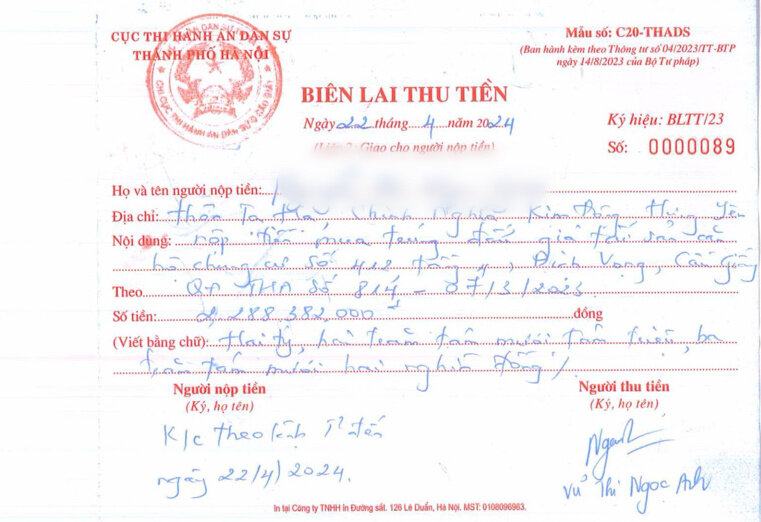 CỤC THI HÀNH ÁN DÂN SỰ
THÀNH PHỐ HÀ NỘI
CHI CỤC THI HÀNH ÁN DÂN SỰ Q. CẦU GIẤY
Mẫu số: C20-THADS
(Ban hành kèm theo Thông tư số 04/2023/TT-BTP
ngày 14/8/2023 của Bộ Tư pháp)
BIÊN LAI THU TIỀN
Ngày 22 tháng 4 năm 2024
Giao cho người nộp tiền)
Ký hiệu: BLTT/23
Số: 0000089
Họ và tên người nộp tiền:
Địa chỉ: Thôn Tạ Chính Nghĩa Kim Động Hưng Yên
Nội dung: nộp tiền mua trúng đấu giá tài sản căn
hộ chung cư số 412 tầng 4, Dịch Vọng, Cầu Giấy
Theo QĐ THA số 814 - 07/3/2023
Số tiền: 2,288,382,000 đ đồng
(Viết bằng chữ): Hai tỷ, hai trăm tám mươi tám triệu, ba
trăm tám mươi hai nghìn đồng /
Người nộp tiền
(Ký, họ tên)
Người thu tiền
(Ký, họ tên)
K/c theo lệnh
ngày 22/4/2024.
Nganh
Vũ Thị Ngọc Anh
In tại Công ty TNHH in Đường sắt. 126 Lê Duẩn, Hà Nội. MST: 0108096963.